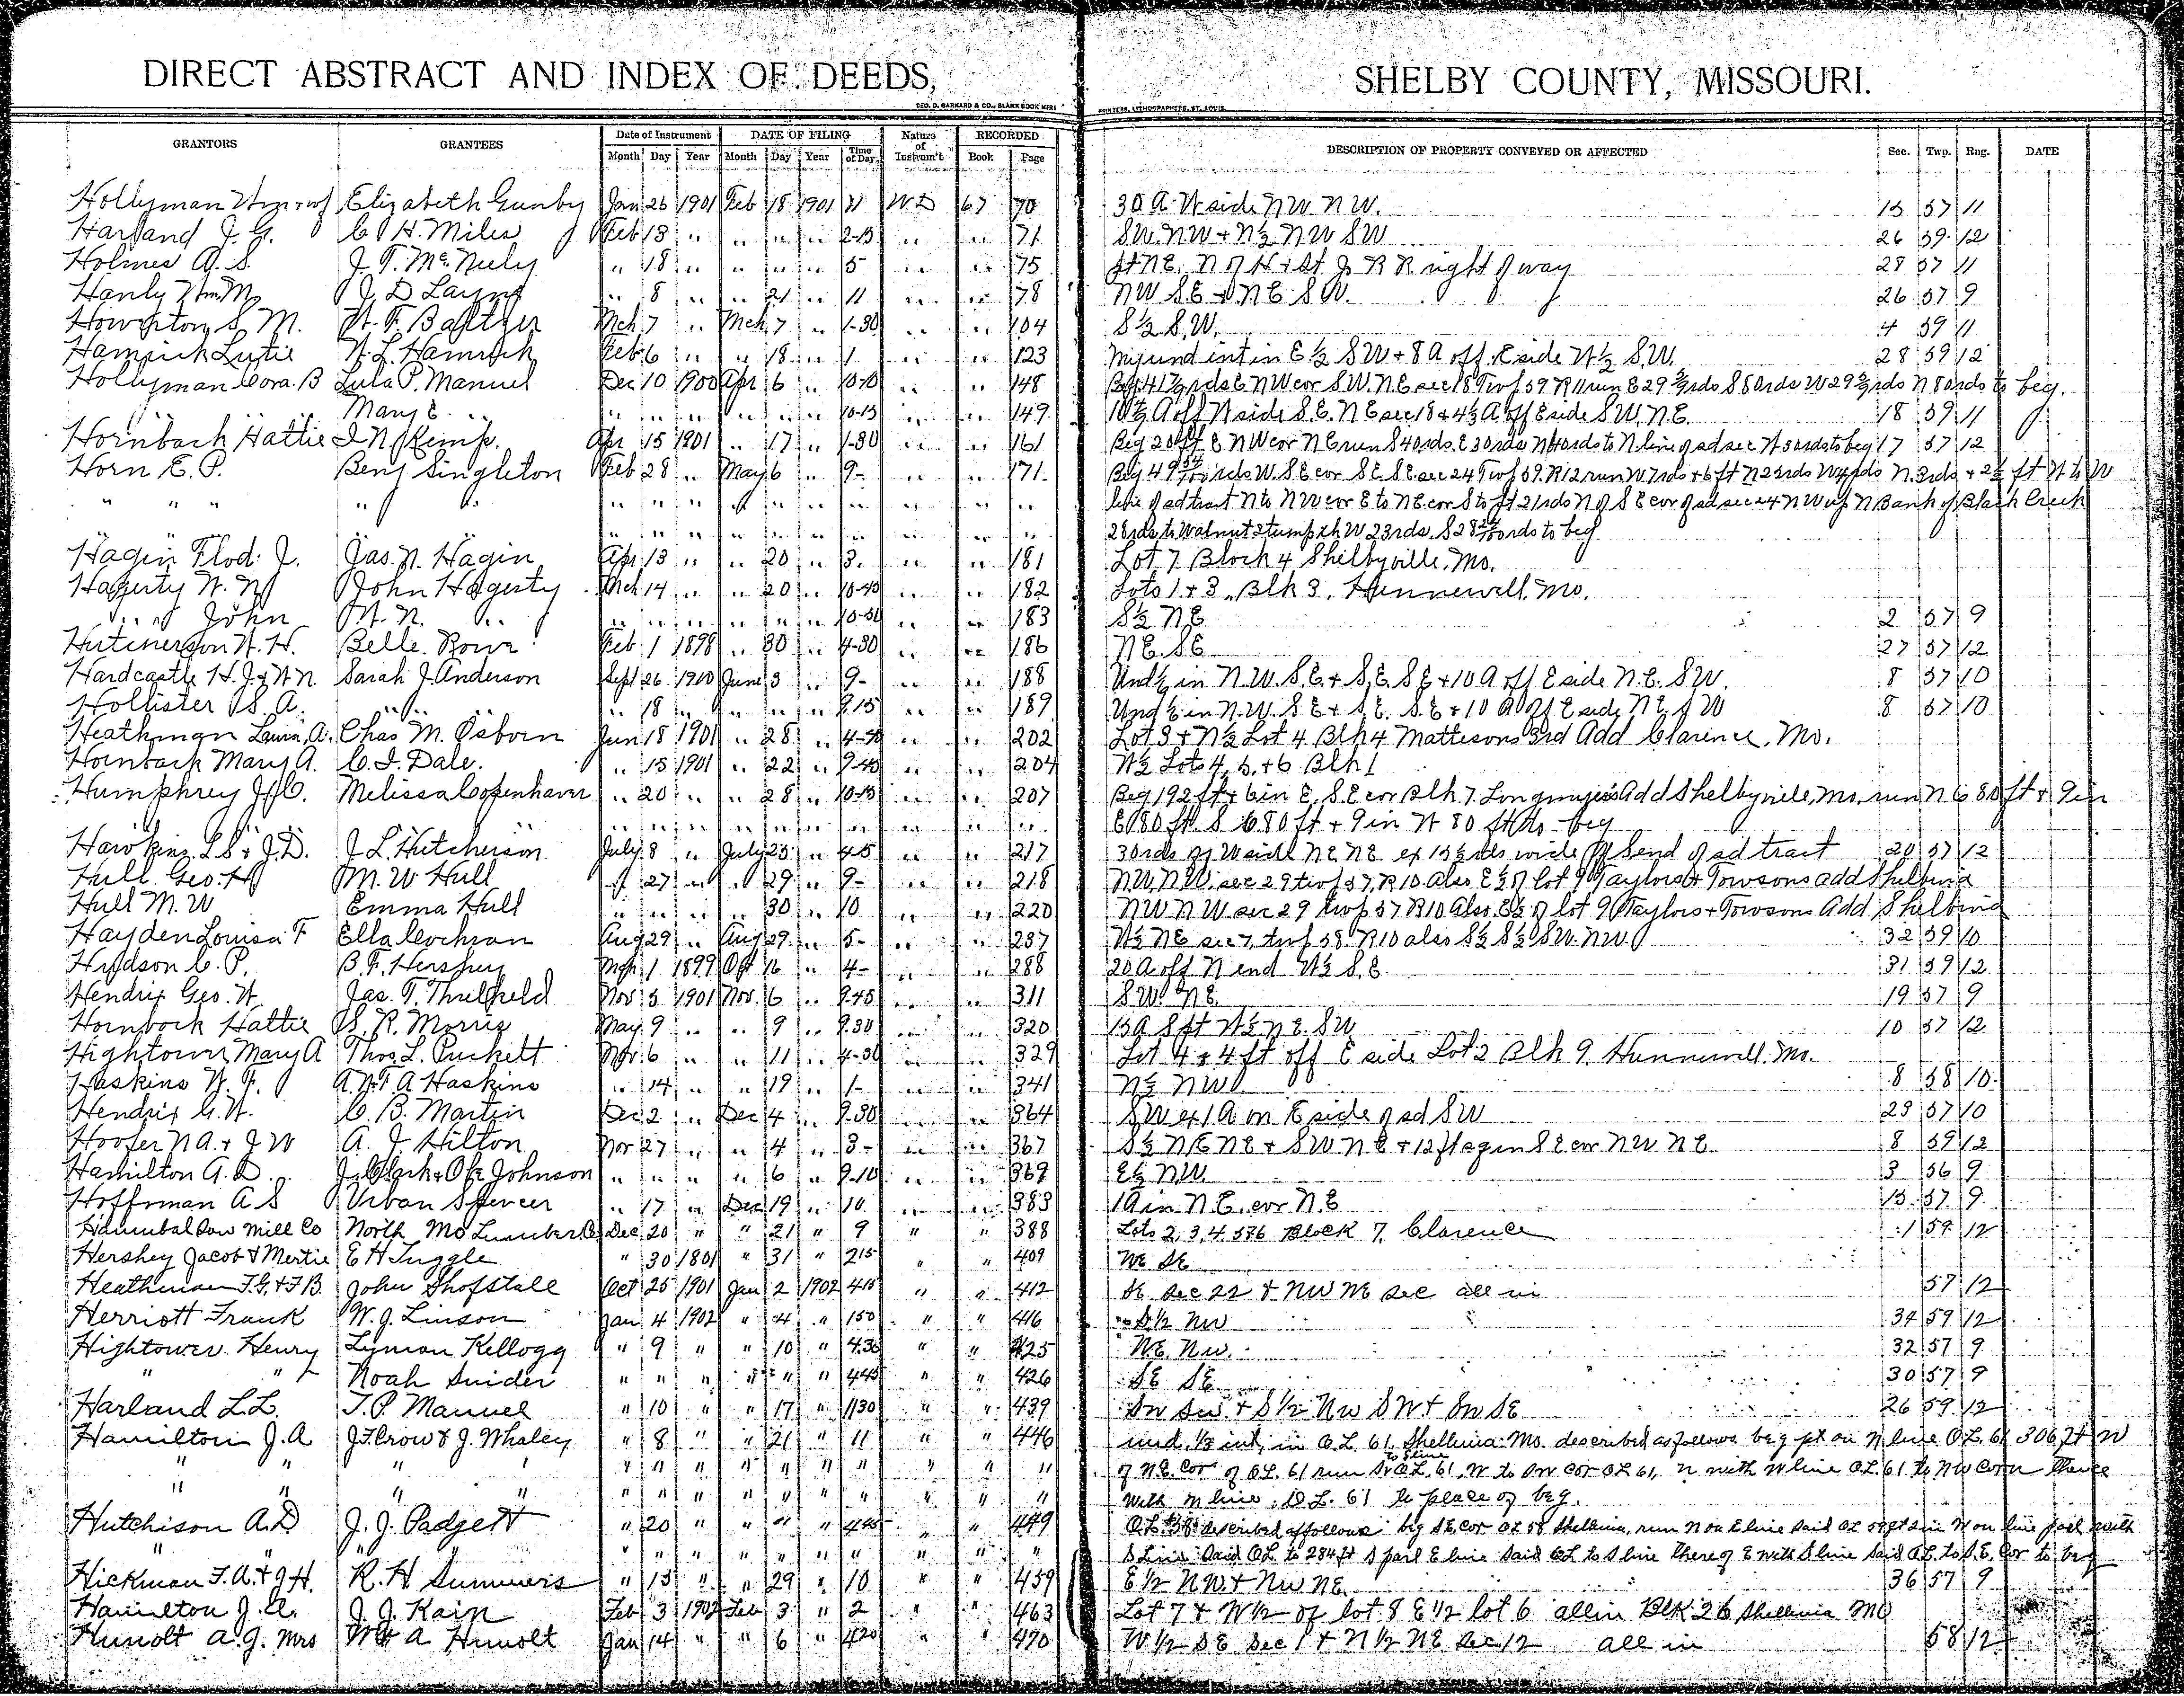 DIRECT ABSTRACT AND INDEX OF DEEDS, SHELBY COUNTY, MISSOURI.
GEO. D. BARNARD & CO., BLANK BOOK MFRS PRINTERS, LITHOGRAPHERS, ST. LOUIS.
GRANTORS GRANTEES Date of Instrument DATE OF FILING Nature of Instrum't RECORDED DESCRIPTION OF PROPERTY CONVEYED OR AFFECTED Sec. Twp. Rng. DATE
Month Day Year Month Day Year Time of Day Book Page
Hollyman Elizabeth Gunby Jan 26 1901 Feb 18 1901 11 W.D 67 70 30 A W side NW NW. 57 11
Harland J. G. C. H. Miles Feb 13 " " " " 2-15 " " 71 SW. NW + N½ NW SW 26 59 12
Holmes A. S. J. T. McNeely " 18 " " " " 5 " " 75 pt NE. N of H + St J R R right of way 28 57 11
Hanly Wm. M. J. D Layne " 8 " " 21 " 11 " " 78 NW SE + NE SW. 26 57 9
Howerton S. M. Mch 7 " Mch 7 " 1-30 " " 104 S½ S.W. 4 59 11
Hamrick Lutie W. L. Hamrick Feb 6 " " 18 " 1 " " 123 My und int in E½ SW + 8 A off E side W½ S.W. 28 59 12
Hollyman Cora. B Lula P. Manuel Dec 10 1900 Apr 6 " 10-10 " " 148 Beg 41 rds E NW cor S.W. NE sec 18 Twp 59 R 11 run E 29 rds S 80 rds W 29 rds N 80 rds to beg.
Mary E. " " " " " " " 10-15 " " 149 A off W side S.E. NE sec 18 & 4½ A off E side SW. NE. 18 59 11
Hornback Hattie I. N. Kemp. Apr 15 1901 " 17 " 1-30 " " 161 Beg 20 ft E. NW cor NE run S 40 rds. E 30 rds N 40 rds to N line of sd sec W 30 rds to beg 17 57 12
Horn E. P. Benj Singleton Feb 28 " May 6 " 9- " " 171 Beg 49 rds W. SE cor SE. SE sec 24 Twp 59. R 12 run W 7 rds + 6 ft N 23 rds W 4 rds N. 3 rds + 2½ ft W to W
" " " " " " " " " " " " " " " line of sd tract N to NW cor E to NE cor S to pt 21 rds N of SE cor of sd sec 24 NW up N Bank of Black Creek
" " " " " " " " " " " " " " " 28 rds to Walnut Stump th W 23 rds. S 28 rds to beg
Hagin Flod. J. Jas. N. Hagin Apr 13 " " 20 " 3. " " 181 Lot 7 Block 4 Shelbyville. Mo.
Hagerty W. N John Hagerty Mch 14 " " 20 " 10-45 " " 182 Lots 1 + 3, Blk 3, Hunnewell. Mo.
" " John W. N. " " " " " " " " " 183 S½ NE 2 57 9
Hutcherson W. H. Belle. Rowe Feb 1 1898 " 30 " 4-30 " " 186 NE. SE 27 57 12
Hardcastle H. J & W N. Sarah J. Anderson Sept 26 1900 June 3 " 9- " " 188 Und ½ in N.W. S.E. + S.E. SE + 10 A off E side N.E. SW. 8 57 10
Hollister S. A. " " " 18 " " " " 9.15 " " 189 Und ½ in N.W. SE + S.E. S.E + 10 A off E side NE SW 8 57 10
Heathman A. Chas M. Osborn Jun 18 1901 " 28 " " " 202 Lot 3 + N½ Lot 4 Blk 4 Mattesons 3rd Add Clarence. Mo.
Hornback Mary A. C. I. Dale. " 15 1901 " 22 " 9-45 " " 204 W½ Lots 4, 5, + 6 Blk 1
Humphrey J. C. Melissa Copenhaver " 20 " " 28 " 10-15 " " 207 Beg 192 ft + 6 in E. S.E cor Blk 7. Longmires Add Shelbyville, Mo. run N 680 ft + 9 in
" " " " " " " " " " " " E 80 ft. S 680 ft + 9 in W 80 ft to beg
Hawkins L S + J. D. J. L. Hutcherson July 8 " July 25 " 4-15 " " 217 30 rds of W side NE NE ex 13½ rds wide off S end of sd tract 20 57 12
Hull. Geo. H M. W Hull " 27 " " 29 " 9- " " 218 NW. NW. sec 29 twp 57, R 10 Also E½ of lot 9 Taylors + Towsons add Shelbina
Hull M. W Emma Hull " " " " 30 " 10 " " 220 NW NW sec 29 twp 57 R10 Also E½ of lot 9 Taylors + Towsons Add Shelbina
Hayden Louisa F Ella Cochran Aug 29 " Aug 29. " 5- " " 237 W½ NE sec 7, twp 58. R 10 also S½ S½ SW. NW. 32 59 10
Hudson C. P. B. F. Hershey Mch 1 1899 Oct 16 " 4- " " 288 20 A off N end W½ S.E. 31 59 12
Hendrix Geo. W. Jas. T. Threlkeld Nov 5 1901 Nov. 6 " 9.45 " " 311 SW. NE. 19 57 9
Hornback Hattie S. R. Morris May 9 " " 9 " 9.30 " " 320 15 A S pt W½ NE. SW 10 57 12
Hightower Mary A Thos. L. Puckett Nov 6 " " 11 " 4-30 " " 329 Lot 4 + 4 ft off E side Lot 2 Blk 9. Hunnewell. Mo.
Haskins W. F. A. W. F. A Haskins " 14 " " 19 " 1- " " 341 N½ NW 8 58 10
Hendrix G. W. C. B. Martin Dec 2 " Dec 4 " 9.30 " " 364 SW ex 1 A. on E side of sd SW 23 57 10
Hoofer N A. + J W A. J. Hilton Nov 27 " " 4 " 3- " " 367 S½ NE NE + SW NE + 12 ft sq in SE cor NW NE. 8 59 12
Hamilton A. D. Johnson " " " " 6 " 9-10 " " 369 E½ NW. 3 56 9
Hoffman A S Urban Spencer " 17 " Dec 19 " 10 " " 383 1 A in N.E. cor NE 13 57 9
Hannibal Saw Mill Co North Mo Lumber Co Dec 20 " " 21 " 9 " " 388 Lots 2, 3, 4, 5 & 6 Block 7, Clarence 1 59 12
Hershey Jacob & Mertie E H Tuggle " 30 1801 " 31 " 215 " " 409 NE SE
Heathman F. G. & F B. John Shofstall Oct 25 1901 Jan 2 1902 415 " " 412 SE sec 22 & NW NE sec all in 57 12
Herriott Frank W. J. Linson Jan 4 1902 " 4 " 150 " " 416 S½ NW 34 59 12
Hightower Henry Lyman Kellogg " 9 " " 10 " 4.30 " " 425 NE. NW. 32 57 9
" " Noah Snider " " " " " " 445 " " 426 SE SE 30 57 9
Harland L. L. T. P. Manuel " 10 " " 17 " 1130 " " 439 SW SW + S½ NW SW + SW SE 26 59 12
Hamilton J. A J F Crow & J. Whaley " 8 " " 21 " 11 " " 446 und. ⅓ int. in O. L 61. Shelbina Mo. described as follows beg pt on N line O. L. 61 306 ft W
" " " " " " " " " " " " " " of N.E. Cor of O.L. 61 run S to S line O.L. 61, W to SW cor OL 61, N with W line O.L. 61 to NW corn thence
" " " " " " " " " " " " " " with N line O. L. 61 to place of beg.
Hutchison A. D J. J. Padgett " 20 " " " " 445 " " 449 described as follows beg SE Cor OL 58 Shelbina, run N on E line said OL W on line parl with
" " " " " " " " " " " S line said OL to 284 ft S parl E line said OL to S line thereof E with S line said OL to S.E. Cor to beg
Hickman F. A. & J H. R. H Summers " 15 " " 29 " 10 " " 459 E½ NW & NW NE. 36 57 9
Hamilton J. A. J. J. Kain Feb 3 1902 Feb 3 " 2 " " 463 Lot 7 & W½ of lot 8 E½ lot 6 all in Blk 26 Shelbina MO
Hunolt A. G. Mrs A Hunolt Jan 14 " " 6 " 420 " " 470 W½ SE Sec 1 & N½ NE Sec 12 all in 58 12